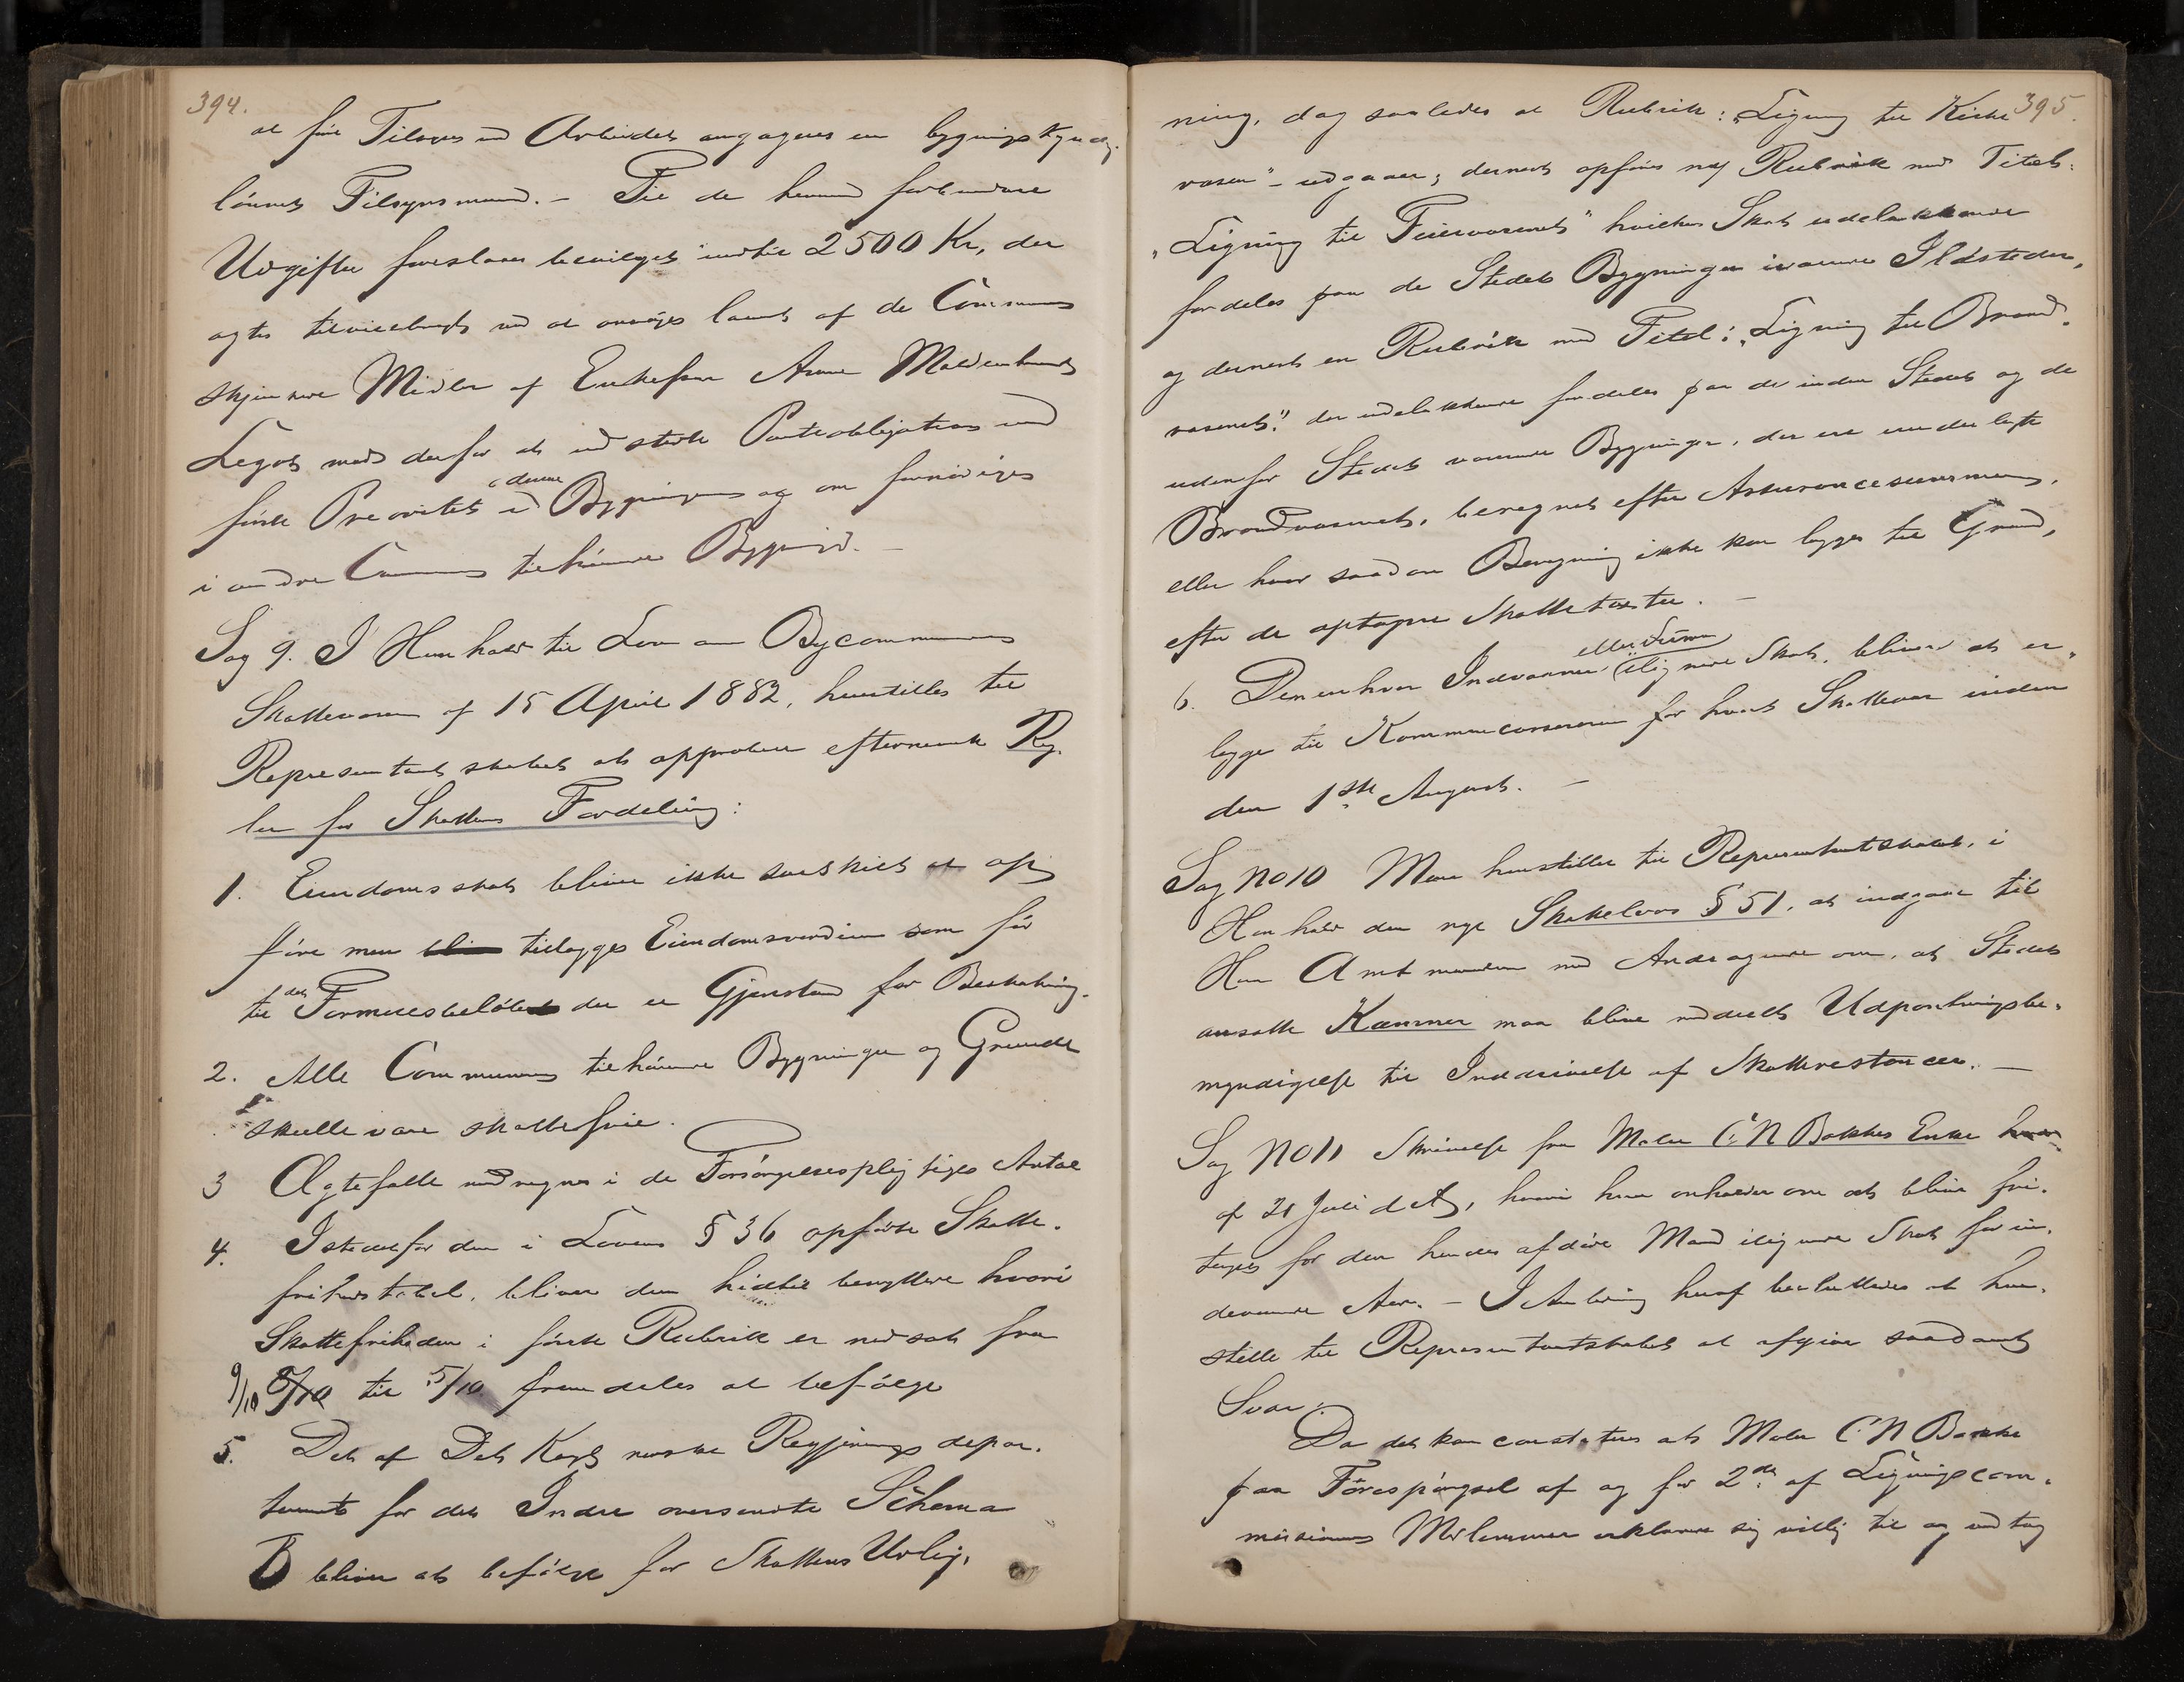 394.
at føre Tilsyn med Arbeidet engageres en bygningskyndig
lønnet Tilsynsmand. - Til de hermed forbundne
Udgifter foreslaaes bevilget indtil 2500 Kr, der
agtes tilveiebragt ved at ansøges laant af de Communen
skjænkede Midler af Enkefru Anne
Legat mod derfor at udstede Panteobligation med
første Prioritet i denne Bygning og om fornødiges
i andre Communen tilhørende Bygning. -
Sag 9. I Henhold til Lov om Bycommunens
Skattevæsen af 15 April 1882, henstilles til
Representantskabet at approbere efternævnte Reg-
ler for Skattens Fordeling:
1. Eiendomsskat bliver ikke særskilt at op
føre men tillægges Eiendomsværdien som før
til det Formuesbeløb der er Gjenstand for Beskatning.
2. Alle Communen tilhørende Bygninger og Grunde
skulle være skattefrie.
3 Ægtefælle medregnes i de Forsørgelsespligtiges Antal
4. Istedetfor den i Lovens § 36 opførte Skatte-
frihedstabel, bliver den hidtil benyttede hvori
Skattefriheden i første Rubrik er nedsat fra
9/10 til 5/10 fremdeles at befølge
5. Det af Det Kgl norske Regjerings depar-
tement for det Indre oversendte Schema
B bliver at befølge for Skattens Udlig-
395.
ning, dog saaledes at Rubrik: "Ligning til Kirke
væsen" - udgaaer; dernæst opføres ny Rubrik med Titel:
"Ligning til Feiervæsenet" hvilken Skat udelukkende
fordeles paa de Stedets Bygninger værende Ildsteder,
og dernæst en Rubrik med Titel: "Ligning til Brand-
væsenet." der udelukkende fordeles paa de inden Stedet og de
udenfor Stedet værende Bygninger, der ere underlagte
Brandvæsenet, beregnet efter Assurancesummen,
eller hvor saadan Beregning ikke kan lægges til Grund,
efter de optagne Skattetaxter. -
6. Den enhver Indvaaner eller Firma ilignede Skat, bliver at er-
lægge til Kommunecassereren for hvert Skatteaar inden
den 1ste August. -
Sag No 10 Man henstiller til Representantskabet, i
Henhold den nye Skattelovs § 51, at indgaa til
Herr Amtmanden med Andragende om, at Stedets
ansatte Kæmner maa blive meddeelt Udpantningsbe-
myndigelse til Inddrivelse af Skatterestancer. -
Sag No 11 Skrivelse fra Maler C. N Bakkes Enke
af 21 Juli d. A, hvori hun anholder om at blive fri-
tages for den hendes afdøde Mand ilignede Skat for in-
deværende Aar. - I Anledning heraf besluttedes at hen-
stille til Representantskabet at afgive saadant
Svar:
Da det kan constateres at Maler C. N Bakke
paa Forespørgsel af og for 2de af Ligningscom-
missionens Medlemmer erklærede sig villig til og vedtog